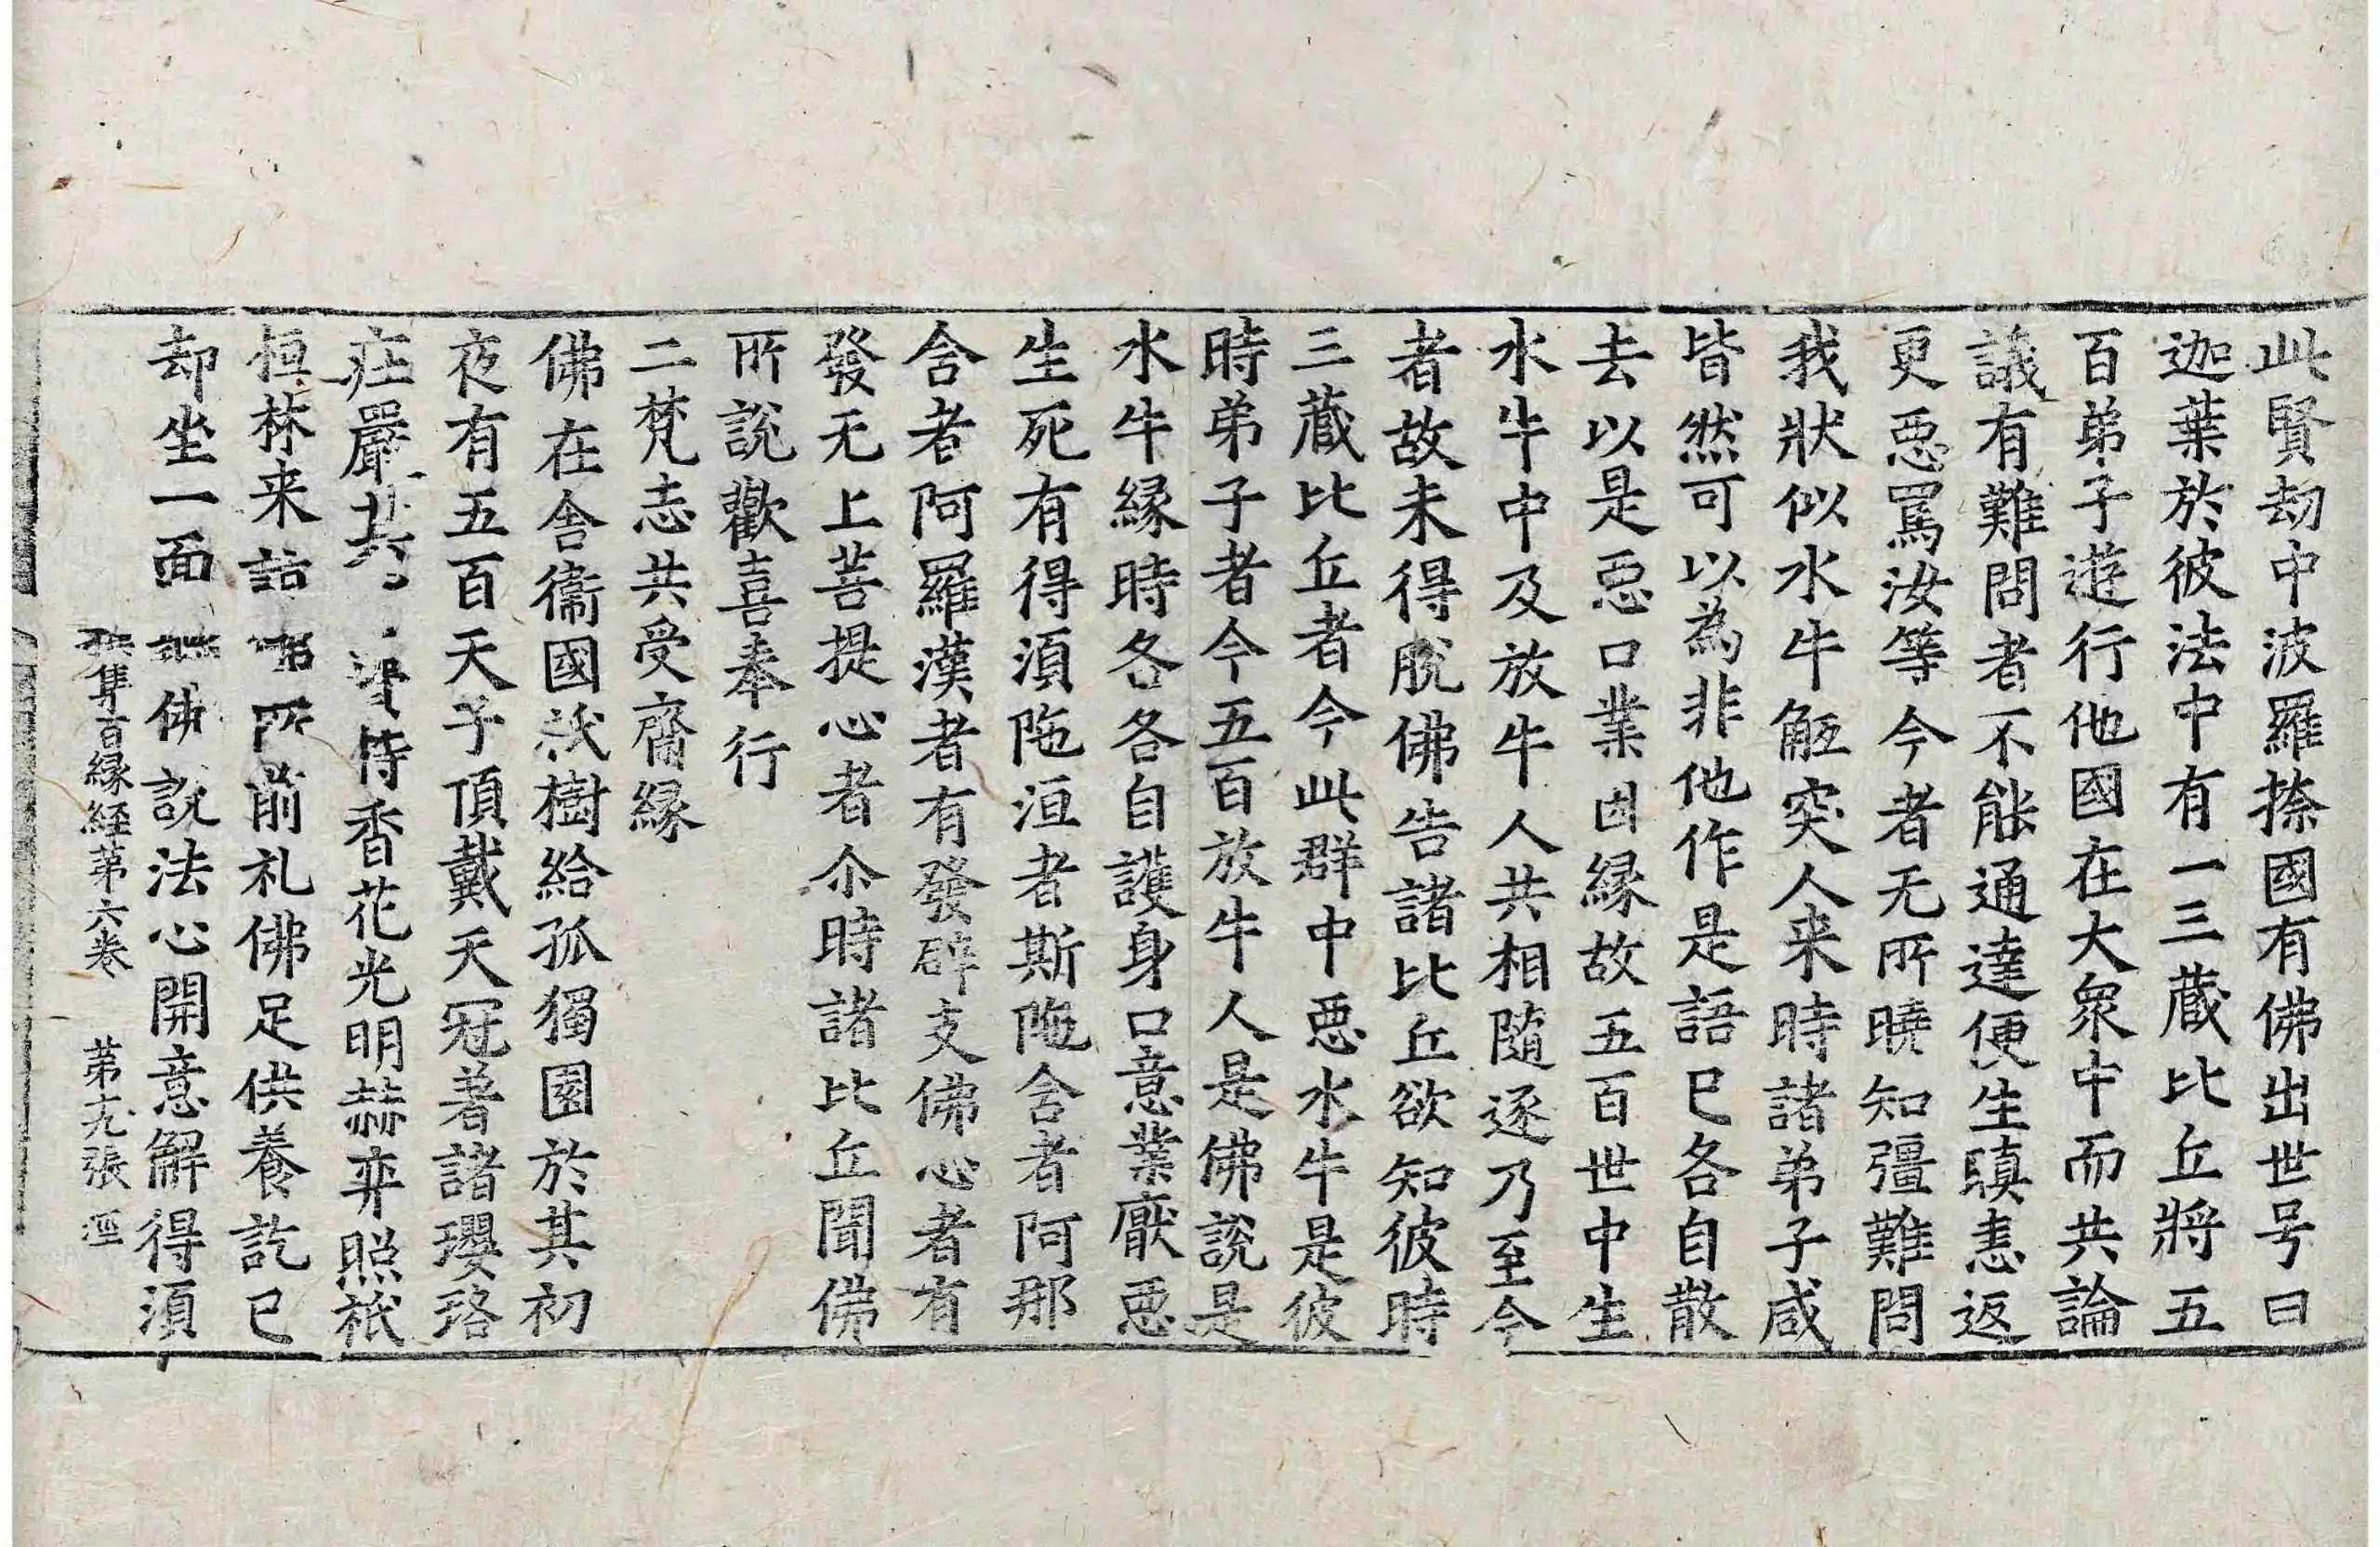 此賢劫中波羅捺國有佛出世号曰
迦葉於彼法中有一三藏比丘將五
百弟子遊行他國在大衆中而共論
議有難問者不能通達便生瞋恚返
更惡罵汝等今者无所曉知彊難問
我狀似水牛觝突人来時諸弟子咸
皆然可以為非他作是語已各自散
去以是惡口業因縁故五百世中生
水牛中及放牛人共相隨逐乃至今
者故未得脫佛告諸比丘欲知彼時
三藏比丘者今此群中惡水牛是彼
時弟子者今五百放牛人是佛說是
水牛縁時各各自護身口意業厭惡
生死有得湏陁洹者斯陁含者阿那
含者阿羅漢者有發辟支佛心者有
發无上菩提心者尒時諸比丘聞佛
所說歡喜奉行
二梵志共受齋縁
佛在舍衞國祇樹給孤獨園於其初
夜有五百天子頂戴天冠著諸瓔珞
莊嚴共賫持香花光明赫弈照祇
桓林来詣所前礼佛足供養訖已
却坐一面佛說法心開意解得湏
集百縁經第六卷 第九張 逕